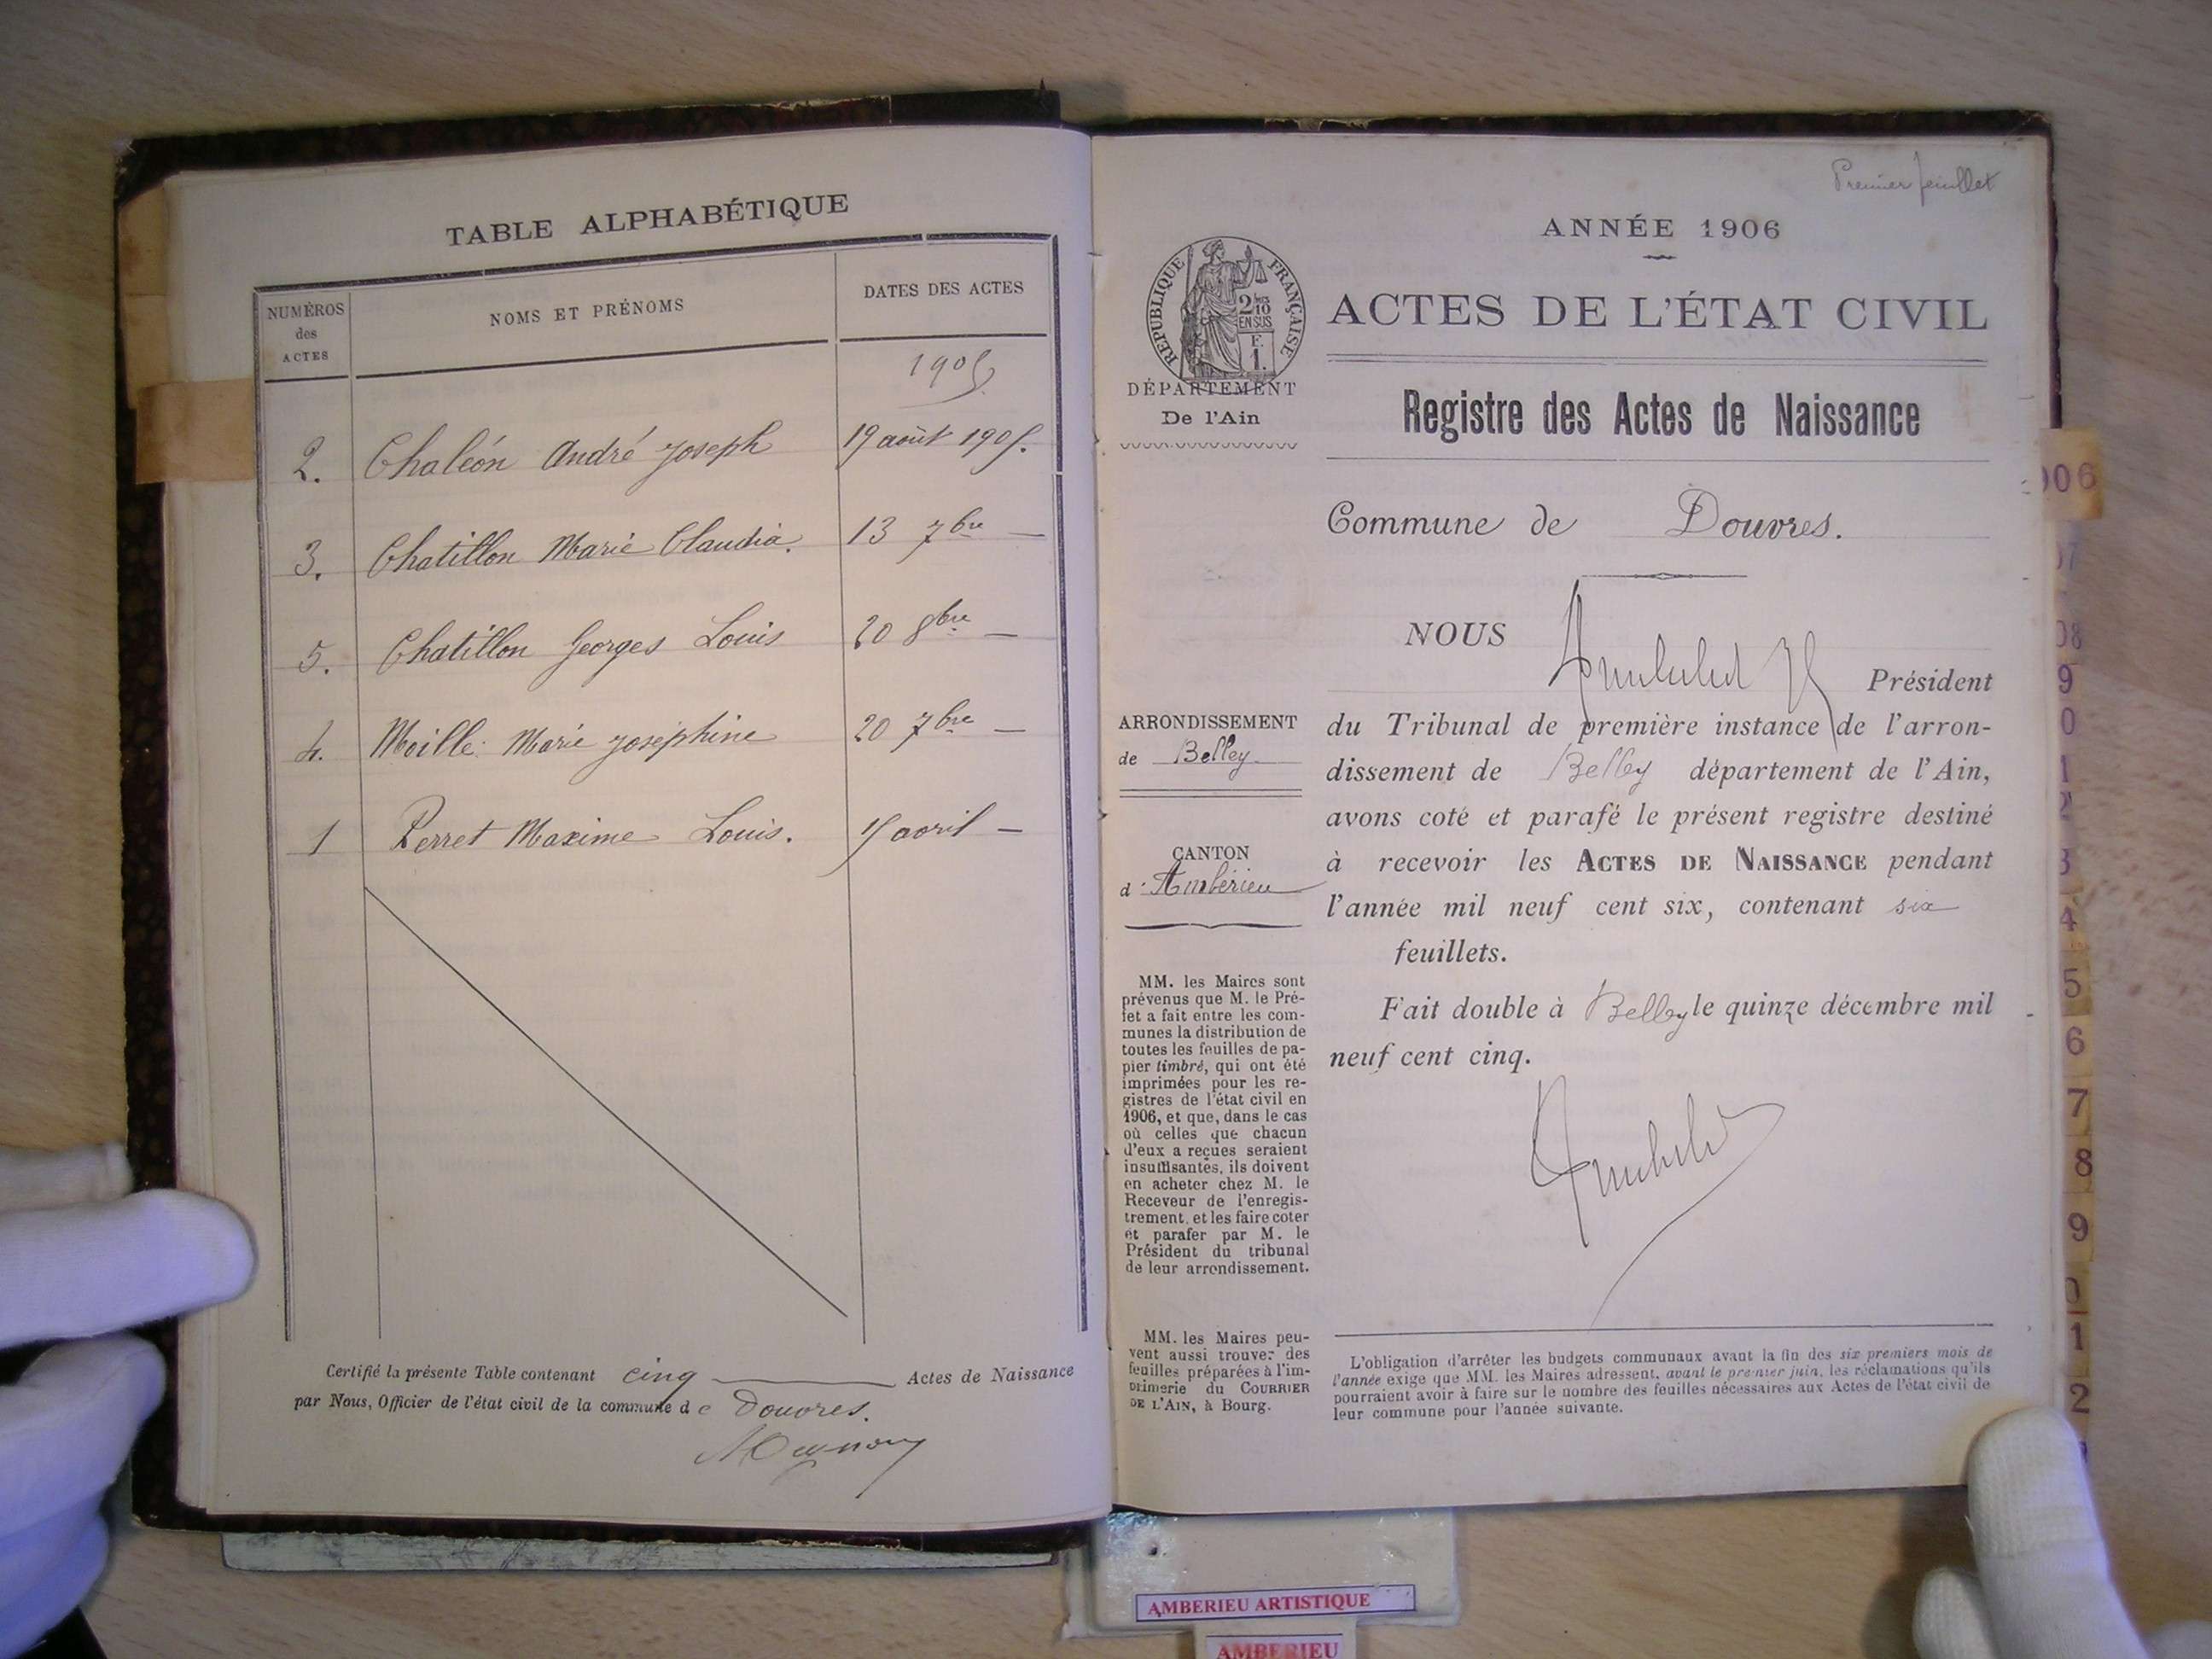 TABLE ALPHABÉTIQUE
NUMÉROS des ACTES
NOMS ET PRÉNOMS
DATES DES ACTES
1905
2. Chaléon André Joseph 19 août 1905.
3. Chatillon Marie Claudia. 13 7bre —
5. Chatillon Georges Louis 20 8bre —
4. Moille Marie Joséphine 20 7bre —
1 Perret Maxime Louis. avril —
Certifié la présente Table contenant cinq Actes de Naissance
par Nous, Officier de l'état civil de la commune de Douvres.
Premier feuillet
ANNÉE 1906
RÉPUBLIQUE FRANÇAISE
2/10 EN SUS
F. 1.
ACTES DE L'ÉTAT CIVIL
DÉPARTEMENT
De l'Ain
Registre des Actes de Naissance
Commune de Douvres.
NOUS
Président
du Tribunal de première instance de l'arron-
dissement de Belley département de l'Ain,
avons coté et parafé le présent registre destiné
à recevoir les ACTES DE NAISSANCE pendant
l'année mil neuf cent six, contenant six
feuillets.
Fait double à Belley le quinze décembre mil
neuf cent cinq.
ARRONDISSEMENT
de Belley
CANTON
d'Ambérieu
MM. les Maires sont
prévenus que M. le Pré-
fet a fait entre les com-
munes la distribution de
toutes les feuilles de pa-
pier timbré, qui ont été
imprimées pour les re-
gistres de l'état civil en
1906, et que, dans le cas
où celles que chacun
d'eux a reçues seraient
insuffisantes, ils doivent
en acheter chez M. le
Receveur de l'enregis-
trement, et les faire coter
et parafer par M. le
Président du tribunal
de leur arrondissement.
MM. les Maires peu-
vent aussi trouver des
feuilles préparées à l'im-
primerie du COURRIER
DE L'AIN, à Bourg.
L'obligation d'arrêter les budgets communaux avant la fin des six premiers mois de
l'année exige que MM. les Maires adressent, avant le premier juin, les réclamations qu'ils
pourraient avoir à faire sur le nombre des feuilles nécessaires aux Actes de l'état civil de
leur commune pour l'année suivante.
906
07
08
9
0
1
2
3
4
5
6
7
8
9
0
1
2
AMBERIEU ARTISTIQUE
AMBERIEU